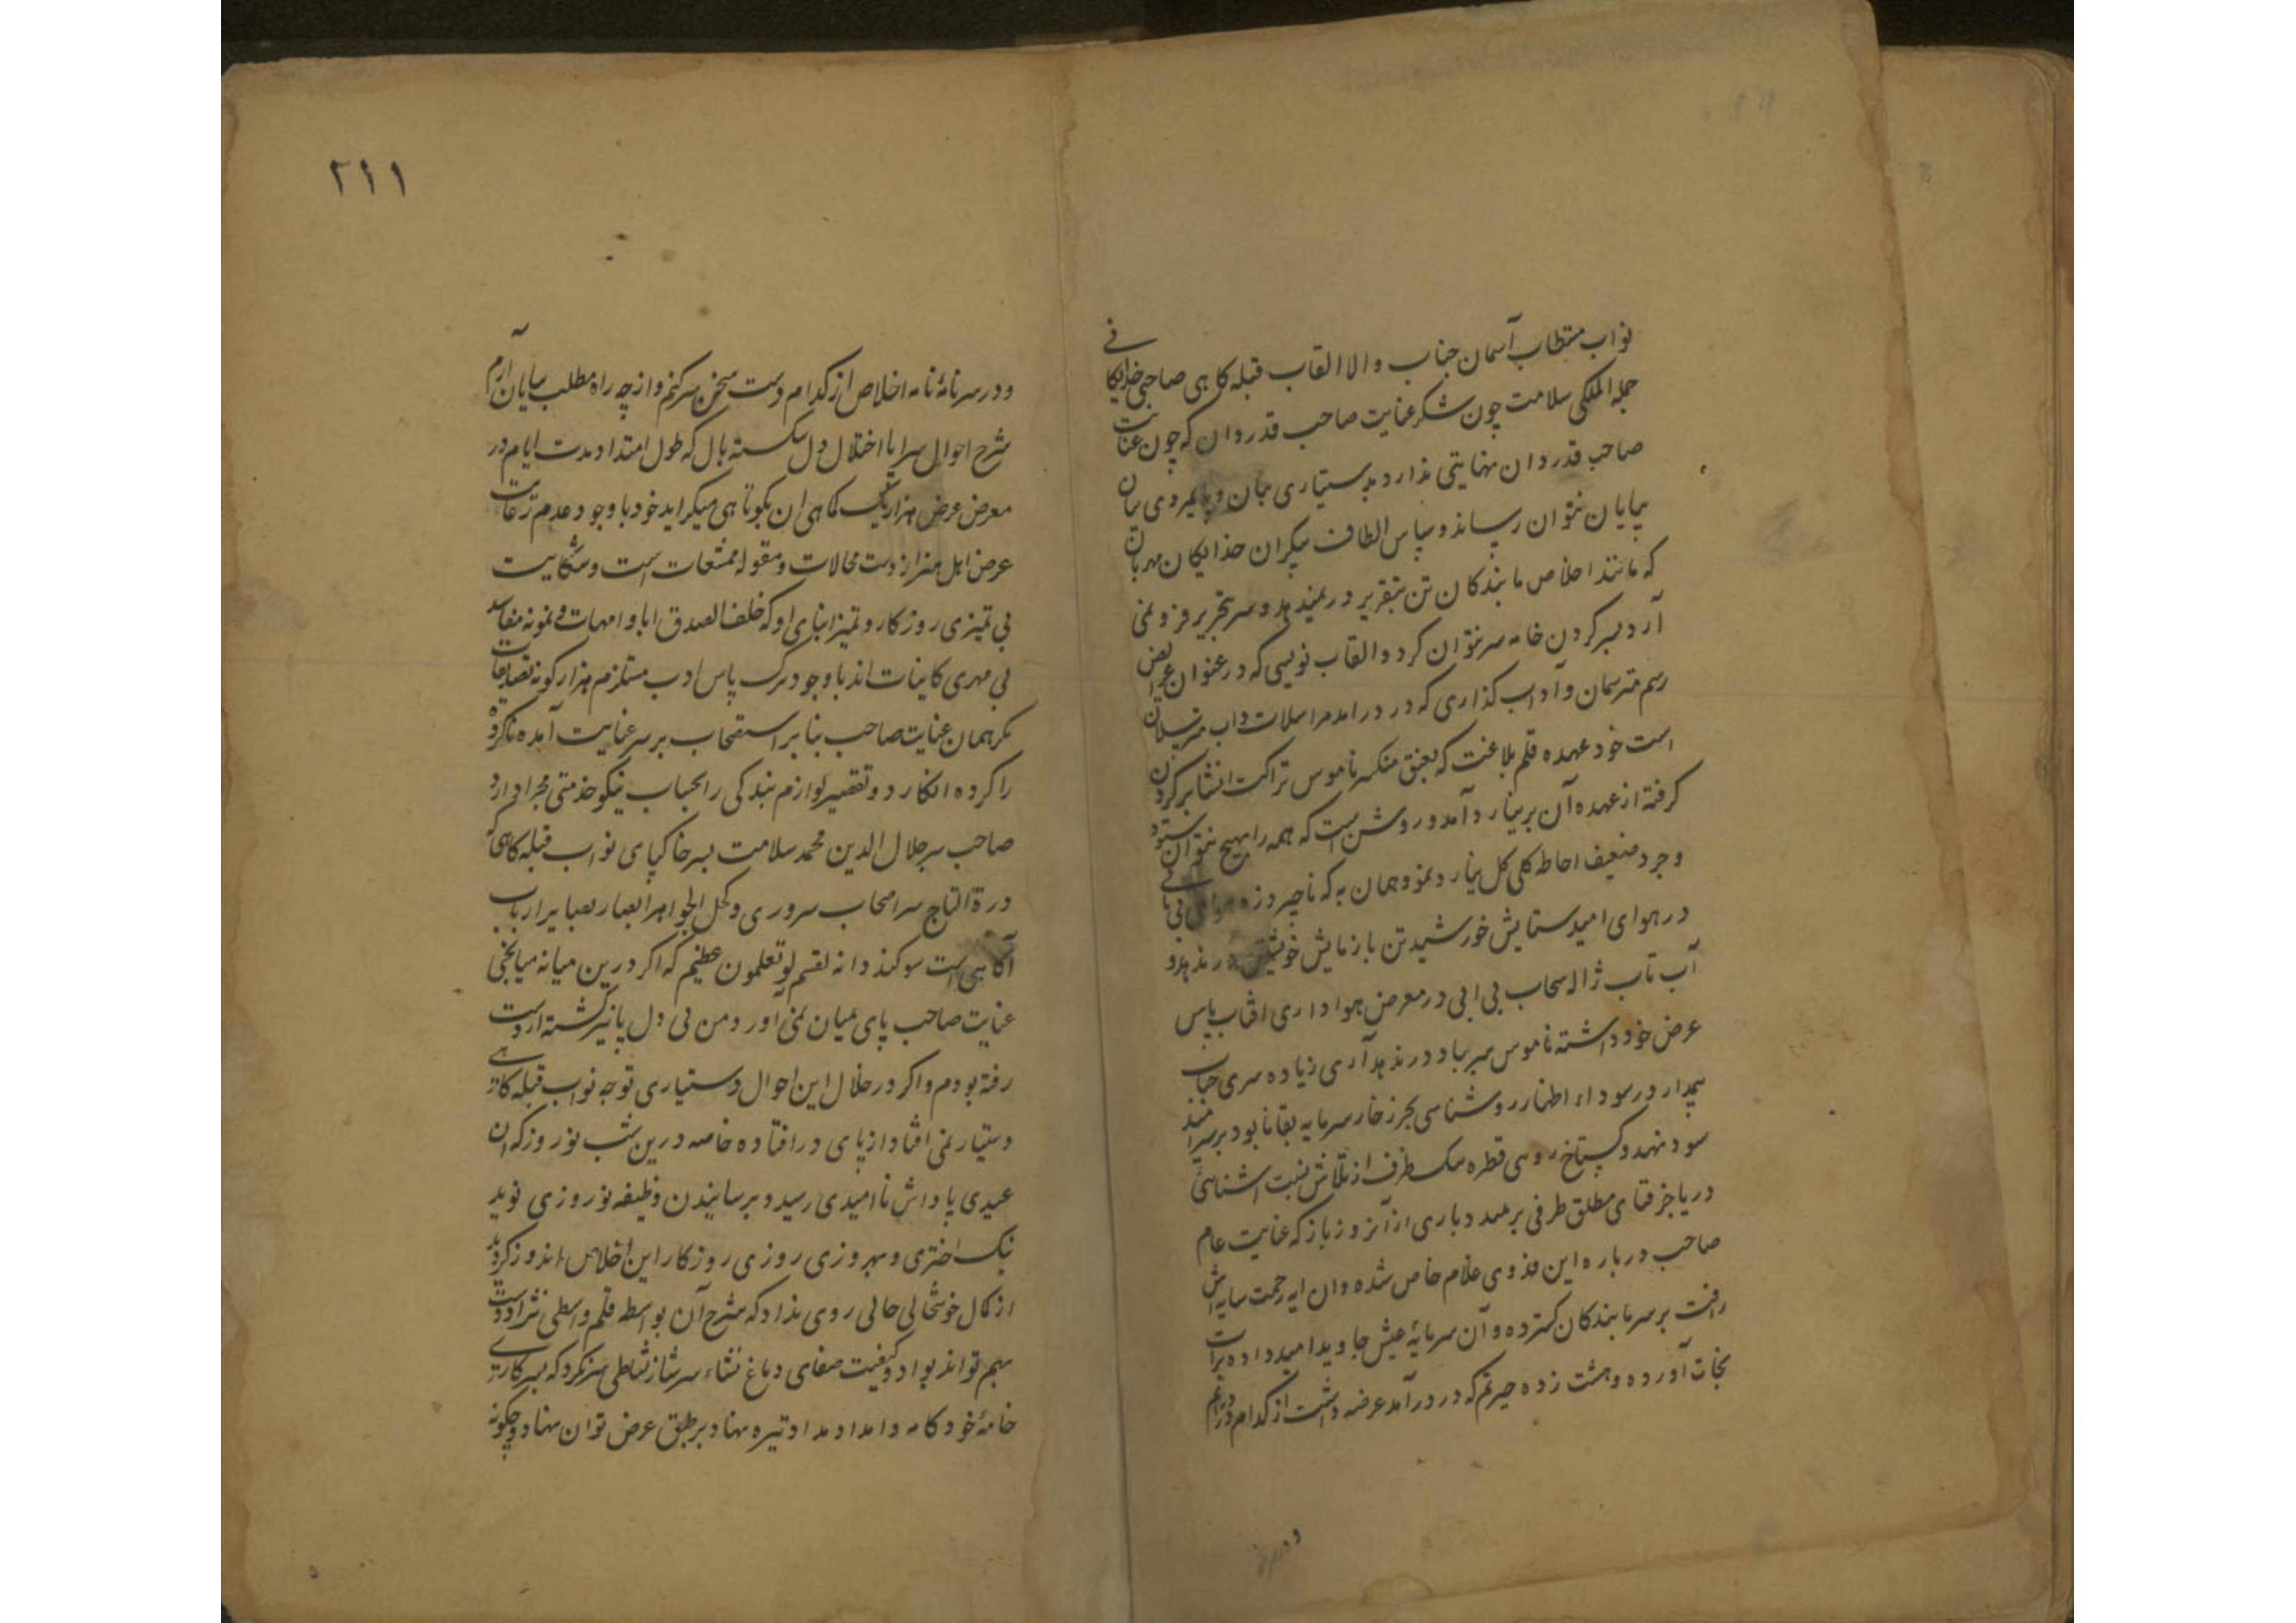 نواب مستطاب آسمان جناب والا القاب قبله کاهی صاحبی خدایکانی
جملة الملکی سلامت چون شکر عنایت صاحب قدردان که چون عنایت
صاحب قدردان نهایتی ندارد بدستیاری بیان و پایمردی بنان
بپایان نتوان رساند و سپاس الطاف بیکران خدایکان مهربان
که مانند اخلاص ما بندکان تن بتقریر در نمیدهد و سر بتحریر فرو نمی
آرد بسر کردن خامه سر نتوان کرد و القاب نویسی که در عنوان عرایض
رسم مترسمان و آداب کذاری که در درامد مراسلات داب مترسلان
است خود عهده قلم بلاغت که بعنق منکسر ناموس انشا بر کردن
کرفته از عهده آن بر نیارد آمد و روشن است که همه را بهیچ نتوان ستود
و جزو ضعیف احاطه کلی کل نیارد نمود همان به که ناچیز ذره
در هوای امید ستایش خورشید تن بازمایش خویشتن در ندهد و
آب تاب ژاله سحاب بی ابی در معرض هواداری افتاب بپاس
عرض خود داشته ناموس بر باد در ندهد آری زیاده سری حباب
در سوداء اظهار روشناسی بحر زخار سرمایه بقا نابود بر سر
سود نهد و کستاخ روی قطره سبک ظرف از تلاش نسبت اشنائی
دریا جز فنای مطلق طرفی بر نبندد باری از آنروز باز که عنایت عام
صاحب درباره این فدوی غلام خاص شده وان ایه رحمت سایه اش
رافت بر سر ما بندکان کسترده و آن سرمایهٔ عیش جاوید امید داده برات
نجات آورده وحشت زده حیرتم که در درآمد عرضه داشت از کدام در درایم
و در سرنامهٔ نامه اخلاص از کدام دست سخن سر کنم و از چه راه مطلب بپایان آرم
شرح احوال سراپا اختلال دل شکسته بال که طول امتداد مدت ایام در
معرض عرض هزار یک کاهی ان بکوتاهی میکراید خود با وجود عدم
عرض اهل هنر از دست محالات و مقوله ممتنعات است و شکایت
بی تمیزی روزکار و تمیز ابنای او که خلف الصدق ابا و امهات و نمونه مفاسد
بی مهری کاینات اند با وجود ترک پاس ادب مستلزم هزار کونه تصدیعات
مکر همان عنایت صاحب بنا بر استصحاب بر سر عنایت آمده ناکرده
را کرده انکارد و تقصیر لوازم بندکی را بحساب نیکو خدمتی مجرا دارد
صاحب سر جلال الدین محمد سلامت بسر خاکپای نواب قبله کاهی که
درة التاج سر اصحاب سروری و کحل الجواهر ابصار بصایر ارباب
آکاهی است سوکند و انه لقسم لو تعلمون عظیم که اکر درین میانه میانجی
عنایت صاحب پای بمیان نمی آورد من بی دل پا نیز کشته از دست
رفته بودم و اکر در خلال این احوال دستیاری توجه نواب قبله کاهی
دستیار نمی افتاد از پای در افتاده خاصه درین شب نوروز که ان
عیدی پاداش ناامیدی رسید و برسانیدن وظیفه نوروزی نوید
نیک اختری و بهروزی روزی روزکار این اخلاص اندوز کردید
از کمال خوشحالی حالی روی نداد که شرح آن بواسطه قلم واسطی نژاد دست
بهم تواند بود و کیفیت صفای دماغ نشاء سرشار نشاطی سر نکرد که بسر کاری
خامهٔ خود کامه و امداد مداد تیره نهاد بر طبق عرض توان نهاد و چکونه
ودرسر
۲۱۱